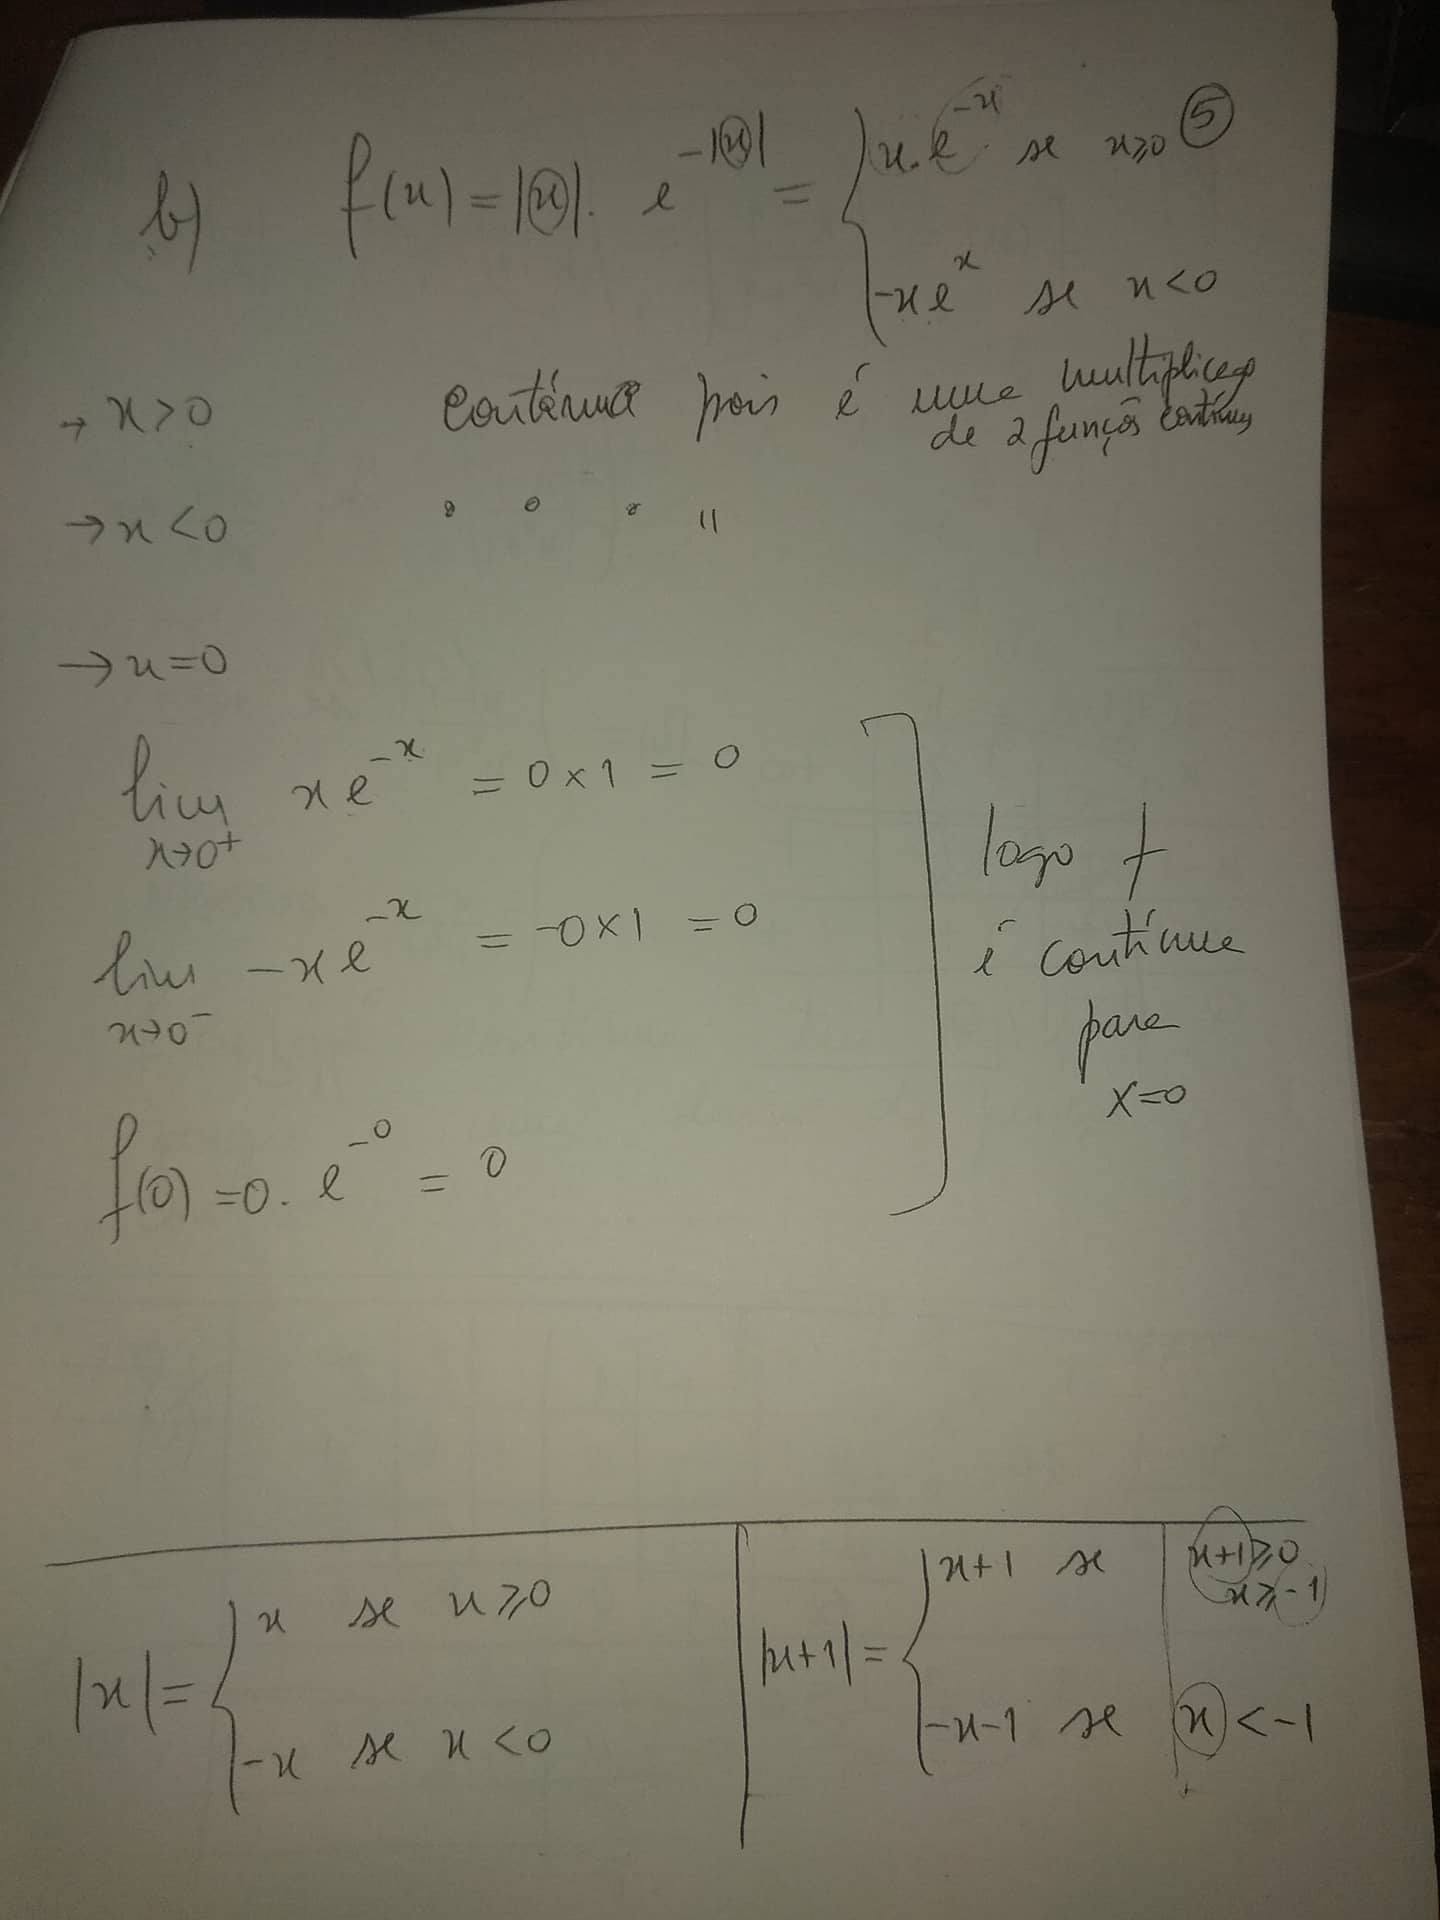 5
b) f(x) = |x|. e^{-|x|} = { x.e^{-x} se x≥0
-x e^{x} se x<0
→ x>0 contínua pois é uma multiplicaçº
de 2 funçõs contínus
→ x<0 " " " "
→ x=0
lim x→0⁺ x e^{-x} = 0 × 1 = 0
lim x→0⁻ -x e^{-x} = -0 × 1 = 0
f(0) = 0. e^{-0} = 0
logo f
é contínua
para
x=0
|x| = { x se x≥0
-x se x<0
|x+1| = { x+1 se x+1≥0
x≥-1
-x-1 se x<-1